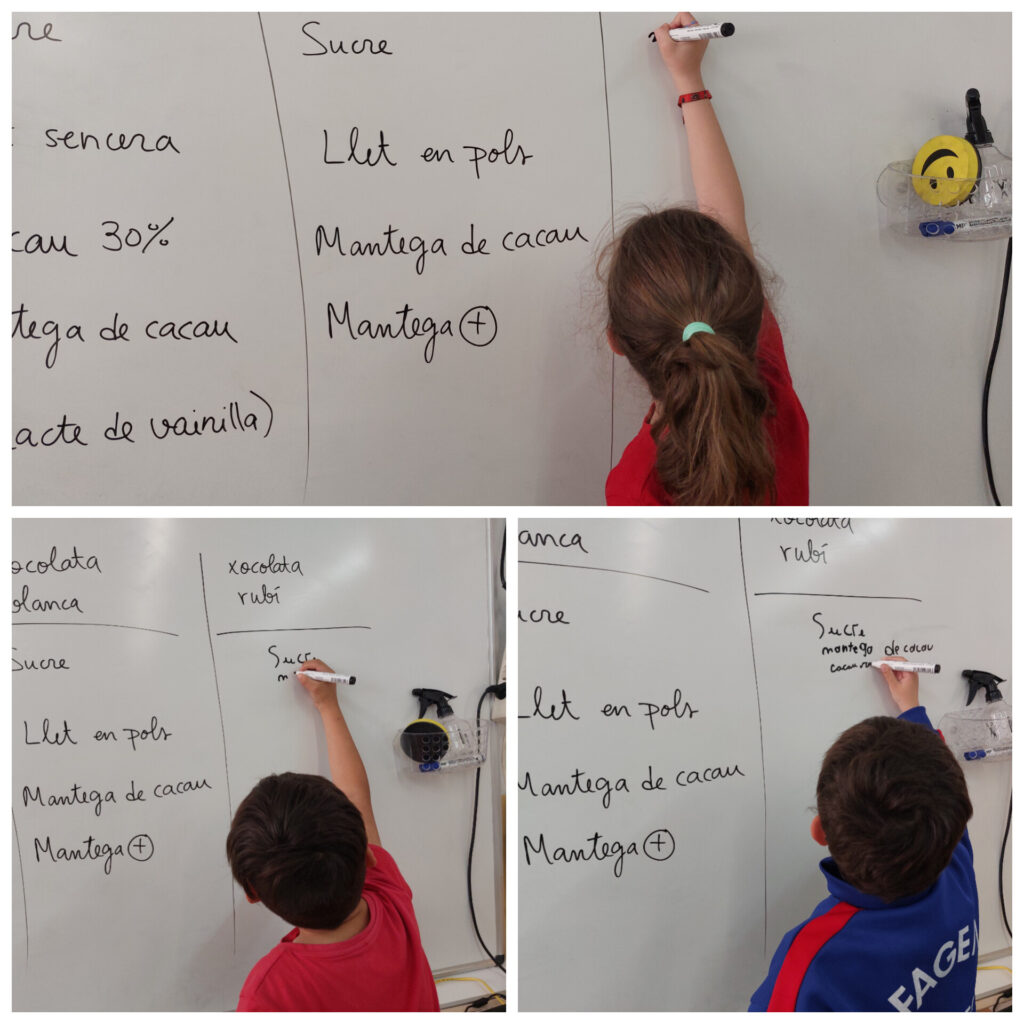 Sucre
sencera
Llet en pols
30%
Mantega de cacau
de cacau
Mantega +
de vainilla)
xocolata
blanca
xocolata
rubí
Sucre
Sucre
Llet en pols
Mantega de cacau
Mantega +
rubí
Sucre
mantega de cacau
cacau
Llet en pols
Mantega de cacau
Mantega +